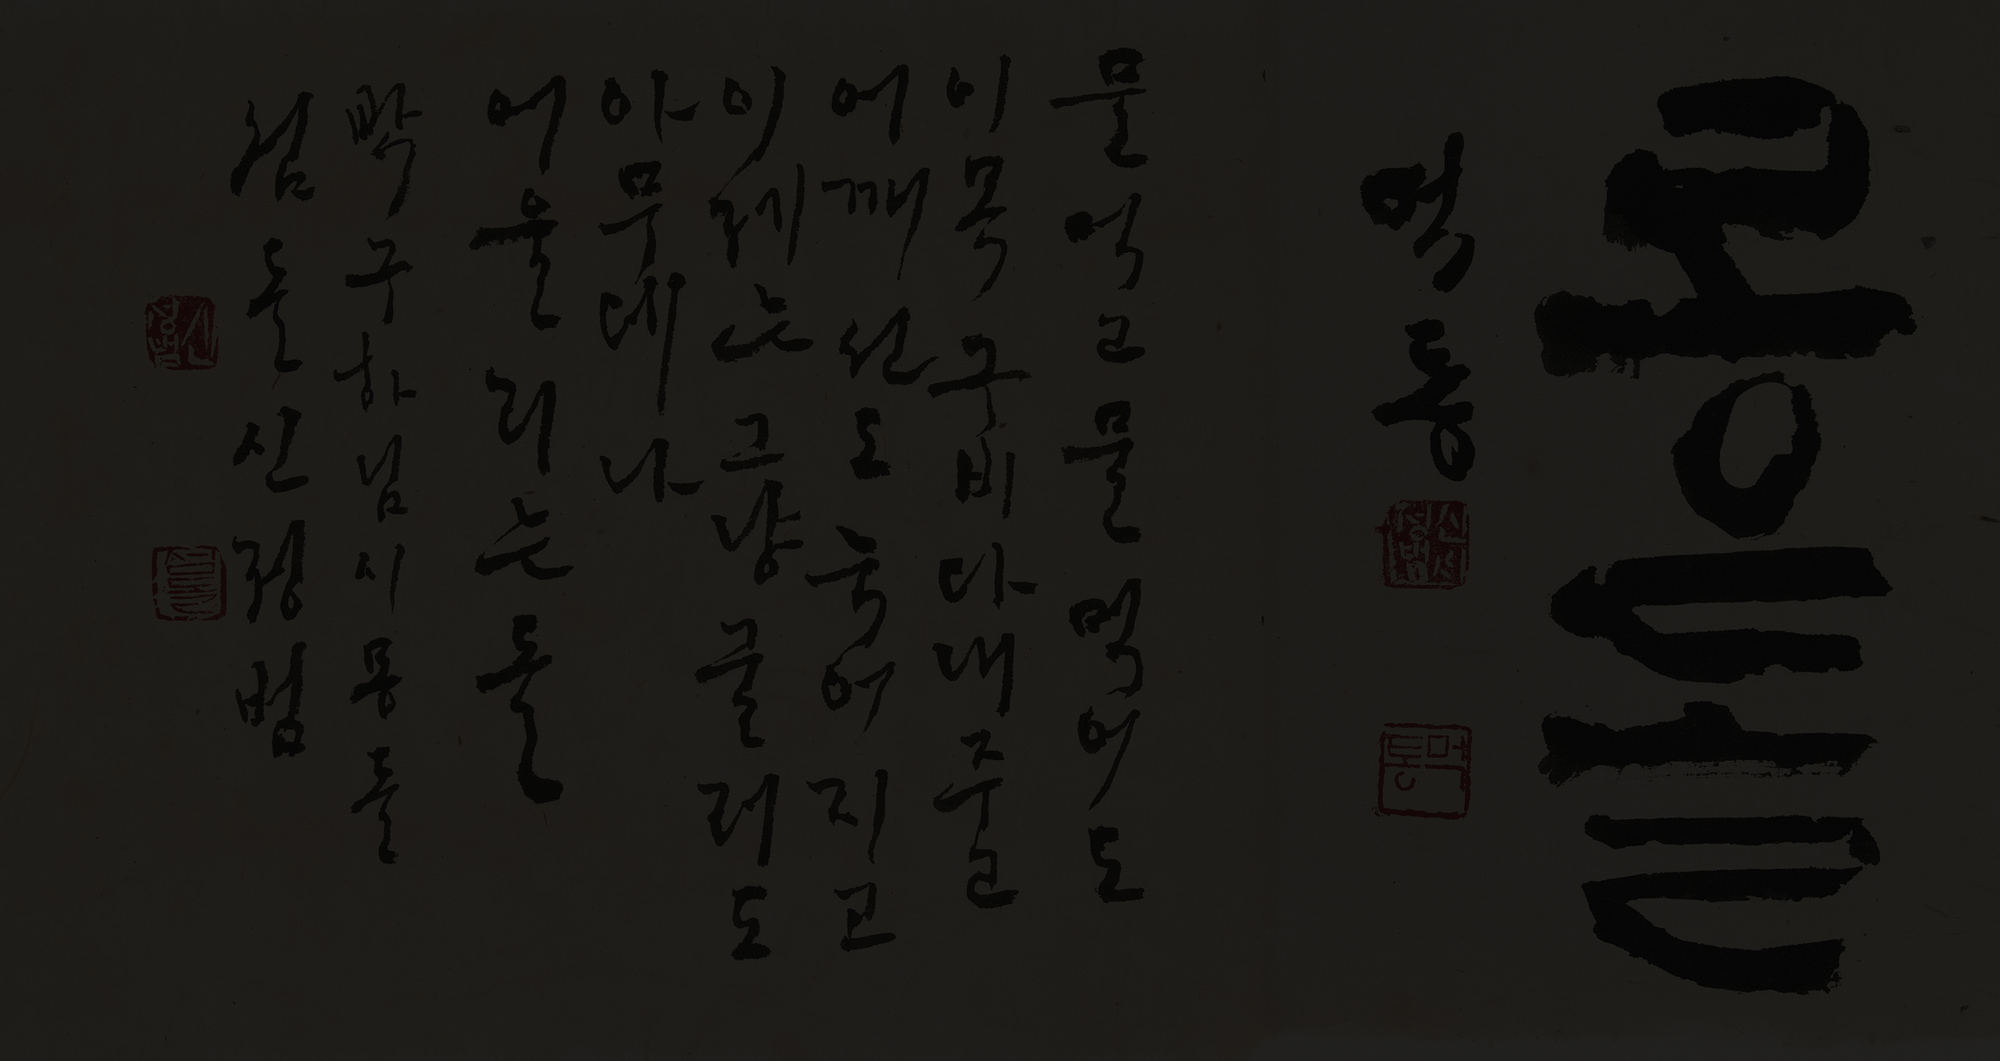 몽돌
먹통
신정범서
먹통
물먹고물먹어도
이목구비다내주고
어깨선도눅어지고
이제는그냥굴러도
아무데나
어울리는돌
박구하님시몽돌
섬돌신정범
신정범